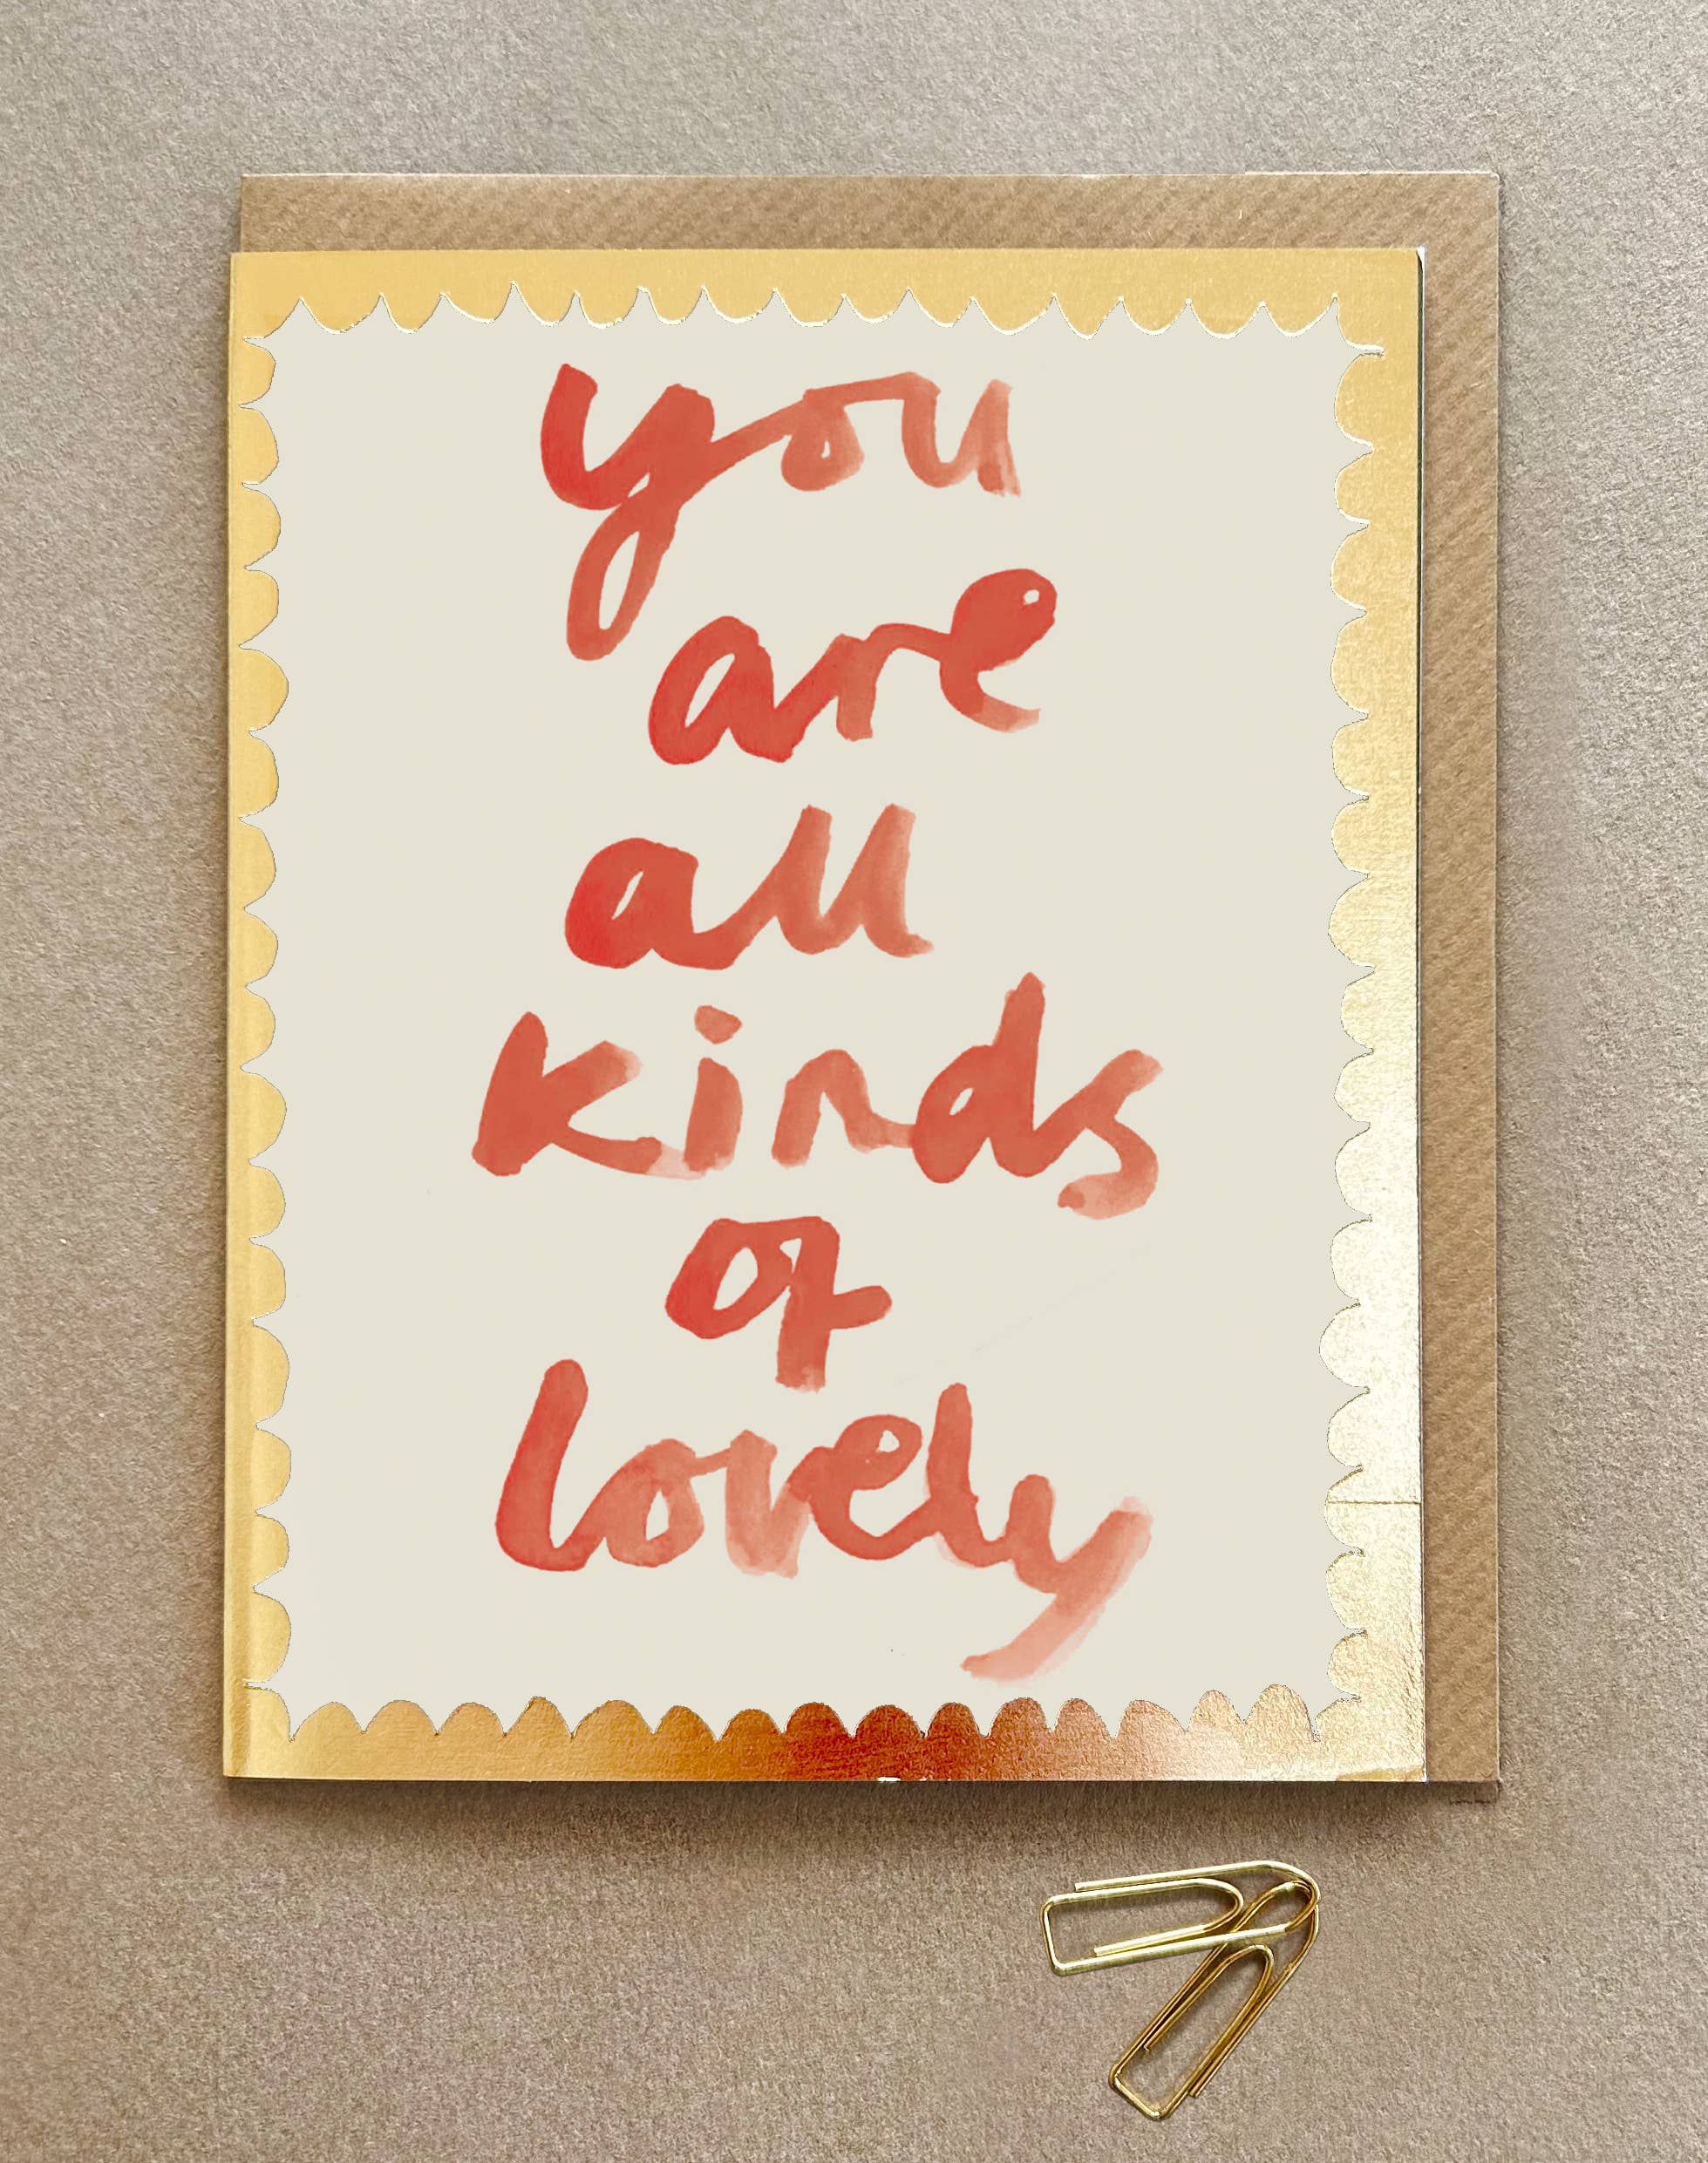 you
are
all
kinds
of
lovely